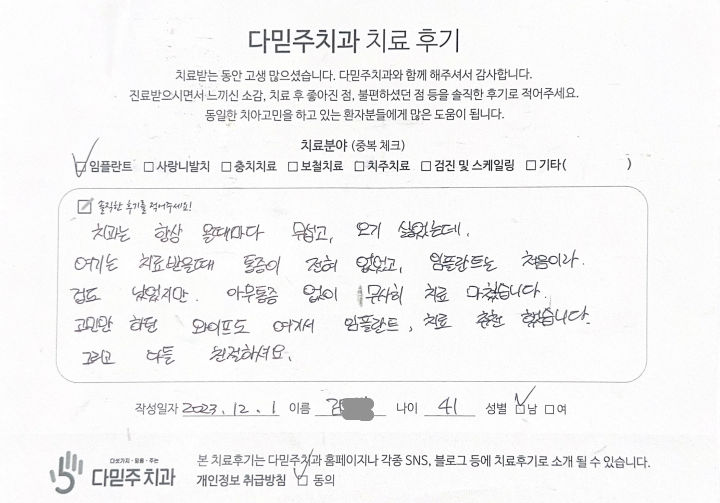 다믿주치과 치료 후기
치료받는 동안 고생 많으셨습니다. 다믿주치과와 함께 해주셔서 감사합니다.
진료받으시면서 느끼신 소감, 치료 후 좋아진 점, 불편하셨던 점 등을 솔직한 후기로 적어주세요.
동일한 치아고민을 하고 있는 환자분들에게 많은 도움이 됩니다.
치료분야 (중복 체크)
임플란트 사랑니발치 충치치료 보철치료 치주치료 검진 및 스케일링 기타( )
솔직한 후기를 적어주세요!
치과는 항상 올때마다 무섭고, 오기 싫었는데.
여기는 치료받을때 통증이 전혀 없었고, 임플란트는 처음이라.
겁도 났었지만. 아무통증 없이 무사히 치료 마쳤습니다.
고민만 하던 와이프도 여기서 임플란트, 치료 추천 했습니다.
그리고 다들 친절하셔요.
작성일자 2023. 12. 1 이름 김 나이 41 성별 남 여
다섯가지·믿음·주는
다믿주치과
본 치료후기는 다믿주치과 홈페이지나 각종 SNS, 블로그 등에 치료후기로 소개 될 수 있습니다.
개인정보 취급방침 동의